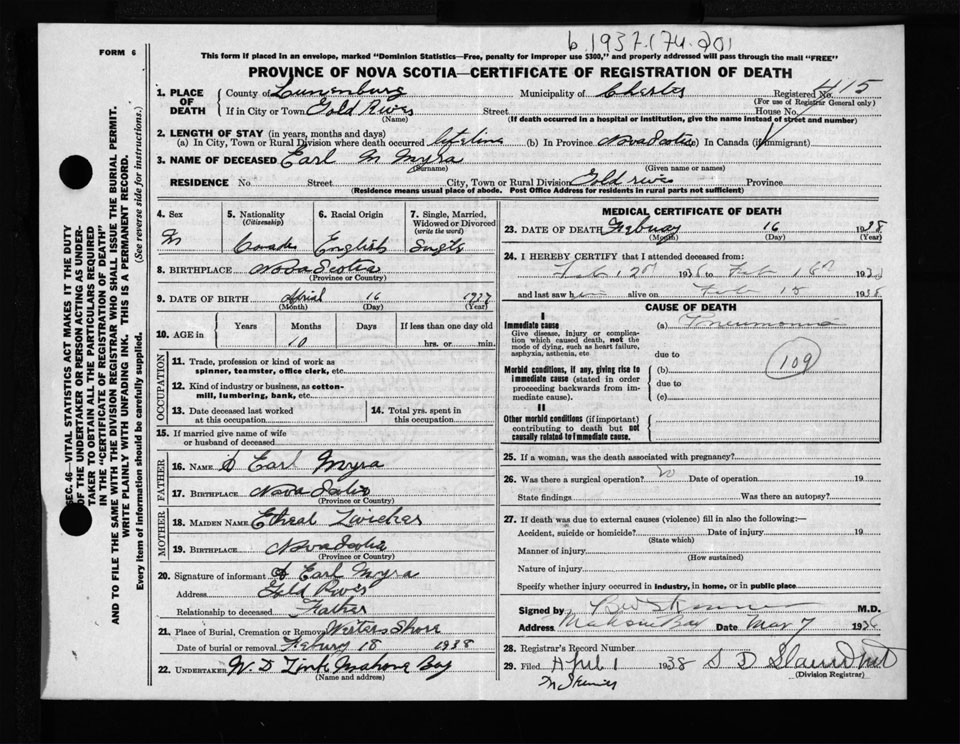 b. 1937 (74-201)
FORM 6
This form if placed in an envelope, marked "Dominion Statistics—Free, penalty for improper use $300," and properly addressed will pass through the mail "FREE"
PROVINCE OF NOVA SCOTIA—CERTIFICATE OF REGISTRATION OF DEATH
1. PLACE OF DEATH
County of Lunenburg Municipality of Chester Registered No. 415
(For use of Registrar General only)
If in City or Town Gold River Street House No.
(Name) (If death occurred in a hospital or institution, give the name instead of street and number)
2. LENGTH OF STAY (in years, months and days)
(a) In City, Town or Rural Division where death occurred lifetime (b) In Province Nova Scotia (c) In Canada (if immigrant)
3. NAME OF DECEASED Earl M Myra
(Surname) (Given name or names)
RESIDENCE No. Street City, Town or Rural Division Gold river Province
(Residence means usual place of abode. Post Office Address for residents in rural parts not sufficient)
SEC. 46—VITAL STATISTICS ACT MAKES IT THE DUTY
OF THE UNDERTAKER OR PERSON ACTING AS UNDER-
TAKER TO OBTAIN ALL THE PARTICULARS REQUIRED
IN THE "CERTIFICATE OF REGISTRATION OF DEATH"
AND TO FILE THE SAME WITH THE DIVISION REGISTRAR WHO SHALL ISSUE THE BURIAL PERMIT.
WRITE PLAINLY WITH UNFADING INK. THIS IS A PERMANENT RECORD.
Every item of information should be carefully supplied. (See reverse side for instructions.)
4. Sex
M
5. Nationality
(Citizenship)
Canada
6. Racial Origin
English
7. Single, Married,
Widowed or Divorced
(write the word)
Single
8. BIRTHPLACE Nova Scotia
(Province or Country)
9. DATE OF BIRTH April 16 1937
(Month) (Day) (Year)
10. AGE in
Years Months Days If less than one day old
10 hrs. or min.
OCCUPATION
11. Trade, profession or kind of work as
spinner, teamster, office clerk, etc.
12. Kind of industry or business, as cotton-
mill, lumbering, bank, etc.
13. Date deceased last worked
at this occupation
14. Total yrs. spent in
this occupation
15. If married give name of wife
or husband of deceased
FATHER
16. NAME A Earl Myra
17. BIRTHPLACE Nova Scotia
(Province or Country)
MOTHER
18. MAIDEN NAME Etheal Zwicker
19. BIRTHPLACE Nova Scotia
(Province or Country)
20. Signature of informant A Earl Myra
Address Gold River
Relationship to deceased Father
21. Place of Burial, Cremation or Removal Western Shore
Date of burial or removal Febury 18 1938
22. UNDERTAKER W. D Zink Mahone Bay
(Name and address)
MEDICAL CERTIFICATE OF DEATH
23. DATE OF DEATH Febuay 16 1938
(Month) (Day) (Year)
24. I HEREBY CERTIFY that I attended deceased from:
Feb 12th 1938 to Feb 16th 1938
and last saw him alive on Feb 15 1938
CAUSE OF DEATH
I
Immediate cause
Give disease, injury or complica-
tion which caused death, not the
mode of dying, such as heart failure,
asphyxia, asthenia, etc
(a) Pneumonia
due to
109
Morbid conditions, if any, giving rise to
immediate cause (stated in order
proceeding backwards from im-
mediate cause).
(b)
due to
(c)
II
Other morbid conditions (if important)
contributing to death but not
causally related to immediate cause.
25. If a woman, was the death associated with pregnancy?
26. Was there a surgical operation? no Date of operation 19
State findings Was there an autopsy?
27. If death was due to external causes (violence) fill in also the following:—
Accident, suicide or homicide? Date of injury 19
(State which)
Manner of injury
(How sustained)
Nature of injury
Specify whether injury occurred in industry, in home, or in public place
Signed by M.D.
Address Mahone Bay Date Mar 7 1938
28. Registrar's Record Number
29. Filed April 1 1938 S D
(Division Registrar)